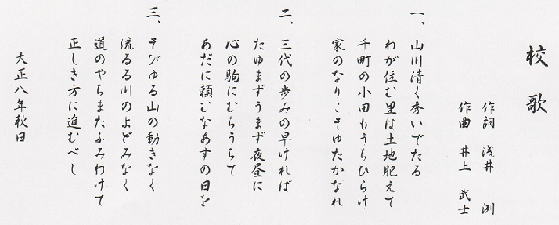 校歌
作詞 浅井 洌
作曲 井上 武士
一、山川清く秀いでたる
わが住む里は土地肥えて
千町の小田もうちひらけ
家のなりこそゆたかなれ
二、三代の歩みの早ければ
たゆまずうまず夜昼に
心の駒にむちうちて
あだに積むなあすの日を
三、そびゆる山の動きなく
流るる川のよどみなく
道のやちまたふみわけて
正しき方に進むべし
大正八年秋日